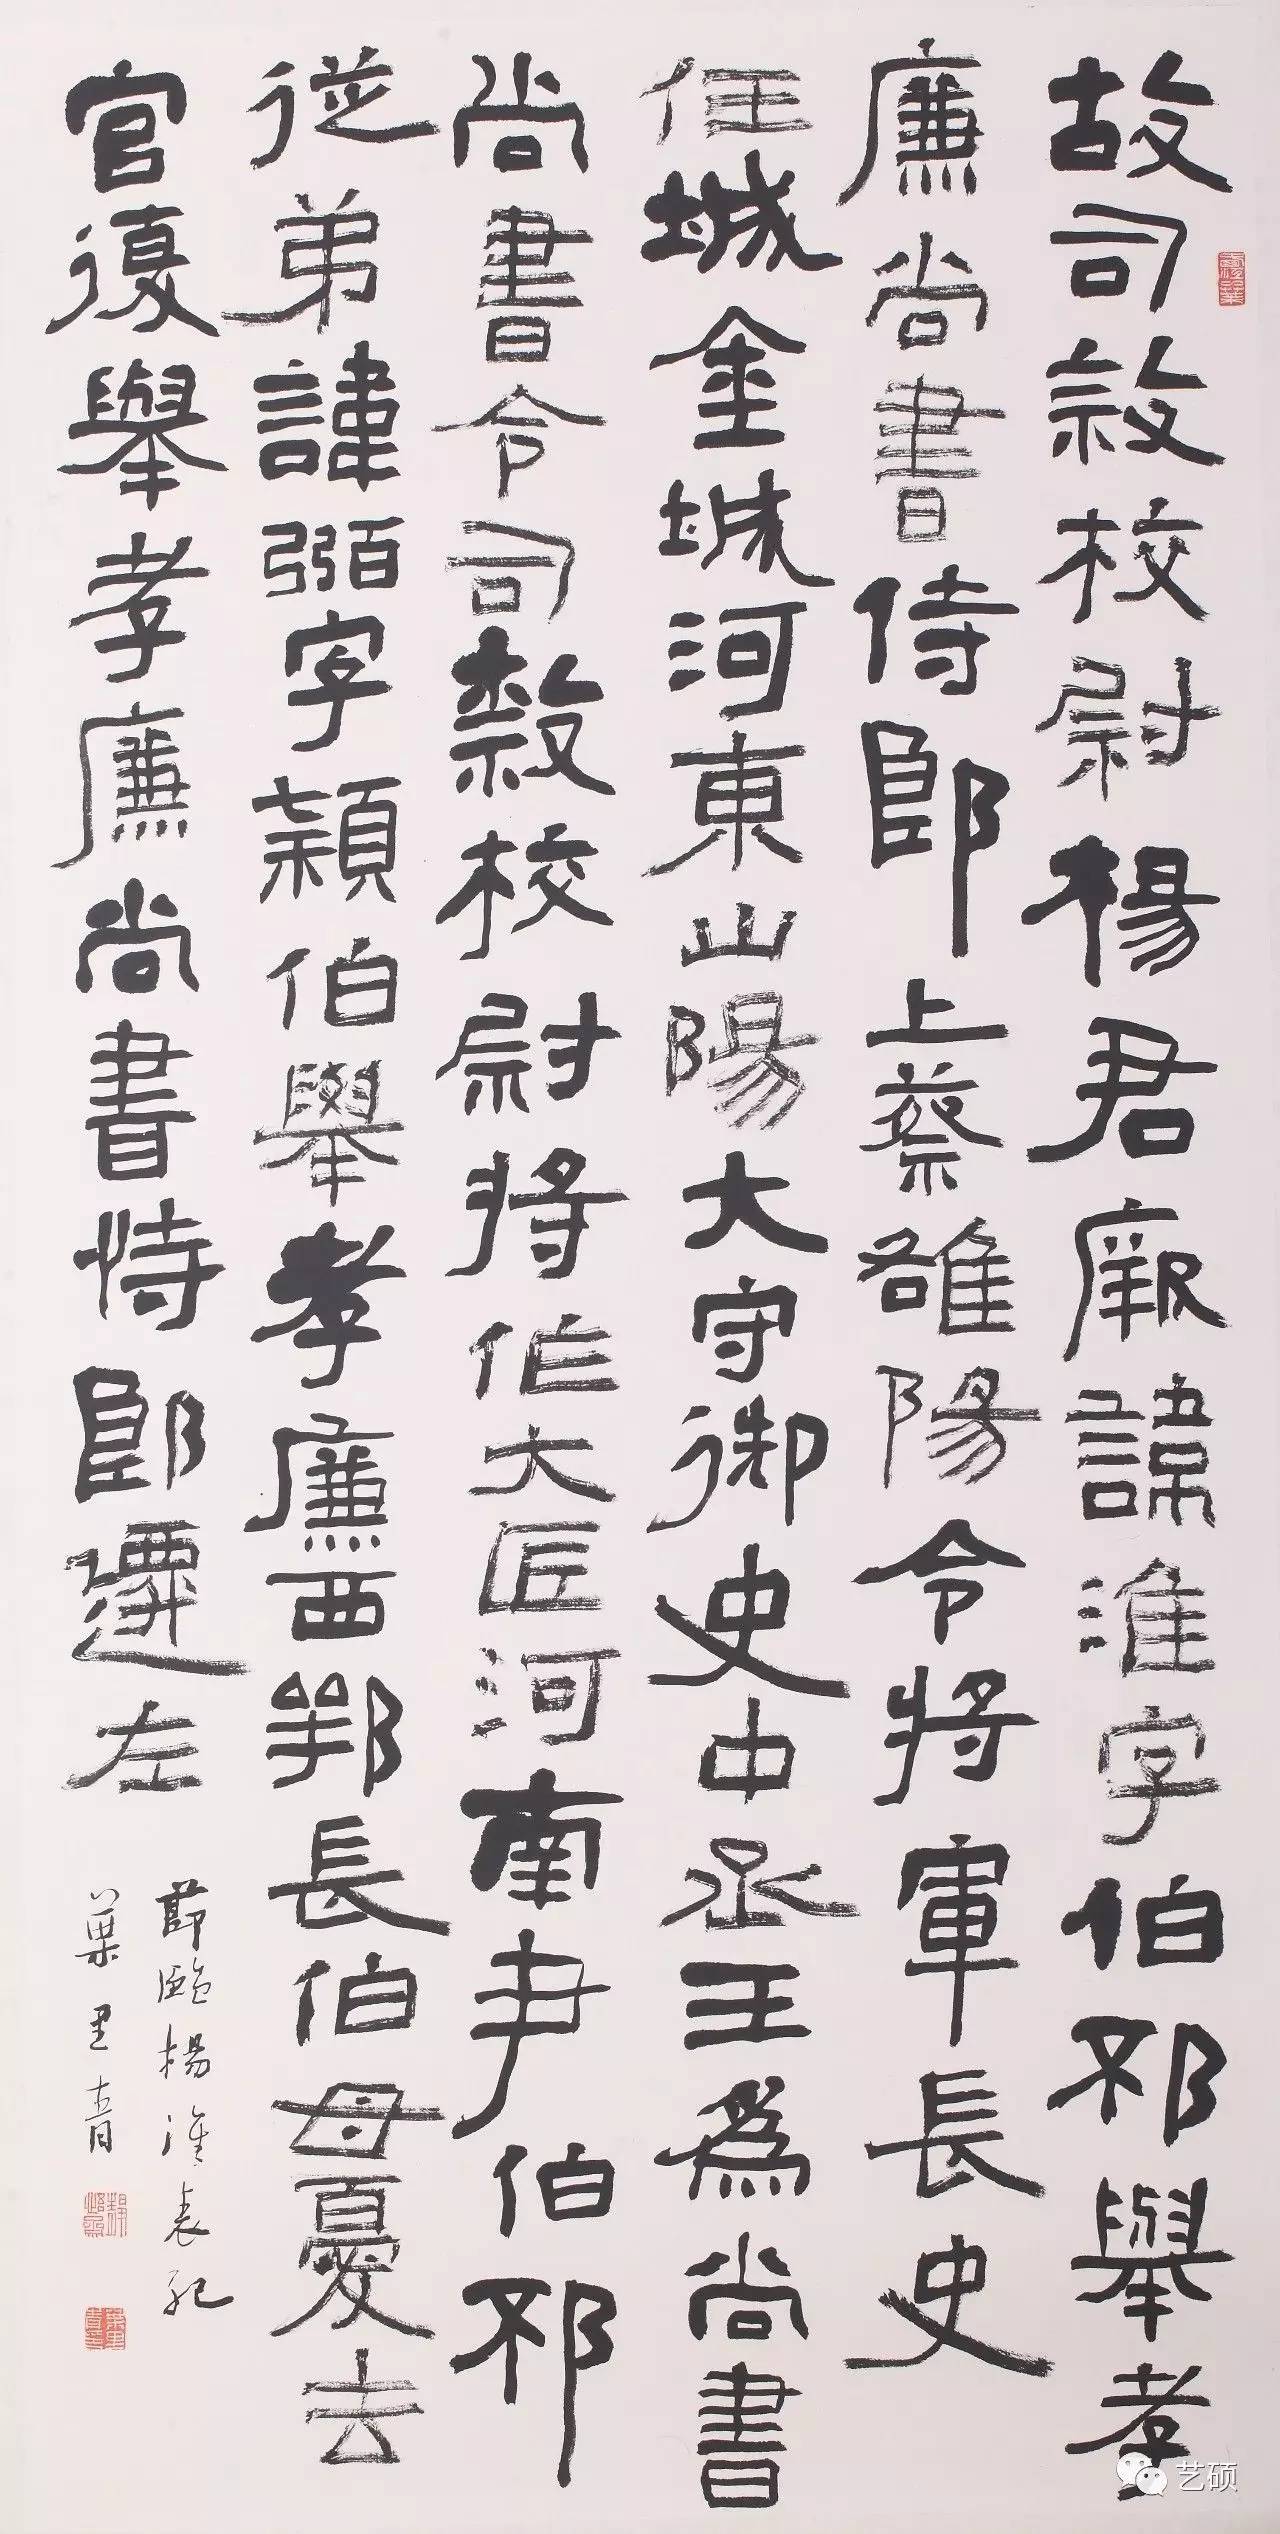 故司隸校尉楊君厥諱淮字伯邳舉孝
廉尚書侍郎上蔡雒陽令將軍長史
任城金城河東山陽大守御史中丞王為尚書
尚書令司隸校尉將作大匠河南尹伯邳
從弟諱弼字穎伯舉孝廉西鄂長伯母憂去
官復舉孝廉尚書侍郎遷左
節臨楊淮表記
里青
艺硕